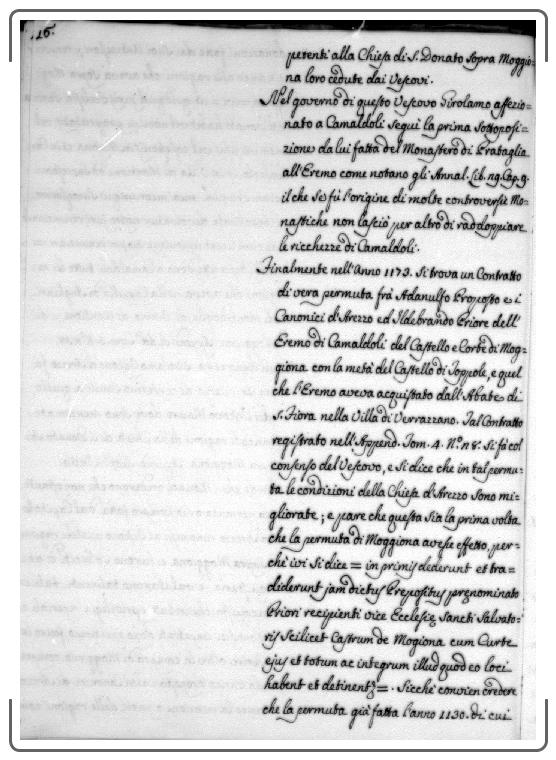 .16.
petenti alla Chiesa di S. Donato sopra Moggio=
na loro cedute dai Vescovi.
Nel governo di questo Vescovo Girolamo affezio=
nato a Camaldoli seguì la prima Sottoposi=
zione da lui fatta del Monastero di Prataglia
all'Eremo come notano gli Annal. Lib. 29. Cap. 9.
il che se fù l'origine di molte controversie Mo=
nastiche non lasciò per altro di raddoppiare
le ricchezze di Camaldoli.
Finalmente nell'Anno 1173. si trova un Contratto
di vera permuta frà Adanulfo Proposto e i
Canonici d'Arezzo ed Ildebrando Priore dell'
Eremo di Camaldoli del Castello e Corte di Mog=
giona con la metà del Castello di Toppole, e quel
che l'Eremo aveva acquistato dall'Abate di
S. Fiora nella Villa di Verrazzano. Tal Contratto
registrato nell'Append. Tom. 4. N.º 18. si fà col
consenso del Vescovo, e si dice che in tal permu=
ta le condizioni della Chiesa d'Arezzo sono mi=
gliorate; e pare che questa sia la prima volta
che la permuta di Moggiona avesse effetto, per=
chè ivi si dice = in primis dederunt et tra=
diderunt jam dictus Prepositus pręnominato
Priori recipienti vice Ecclesię Sancti Salvato=
ris Scilicet Castrum de Mogiona cum Curte
ejus et totum ac integrum illud quod eo loci
habent et detinent =. Sicchè convien credere
che la permuta già fatta l'anno 1130. di cui